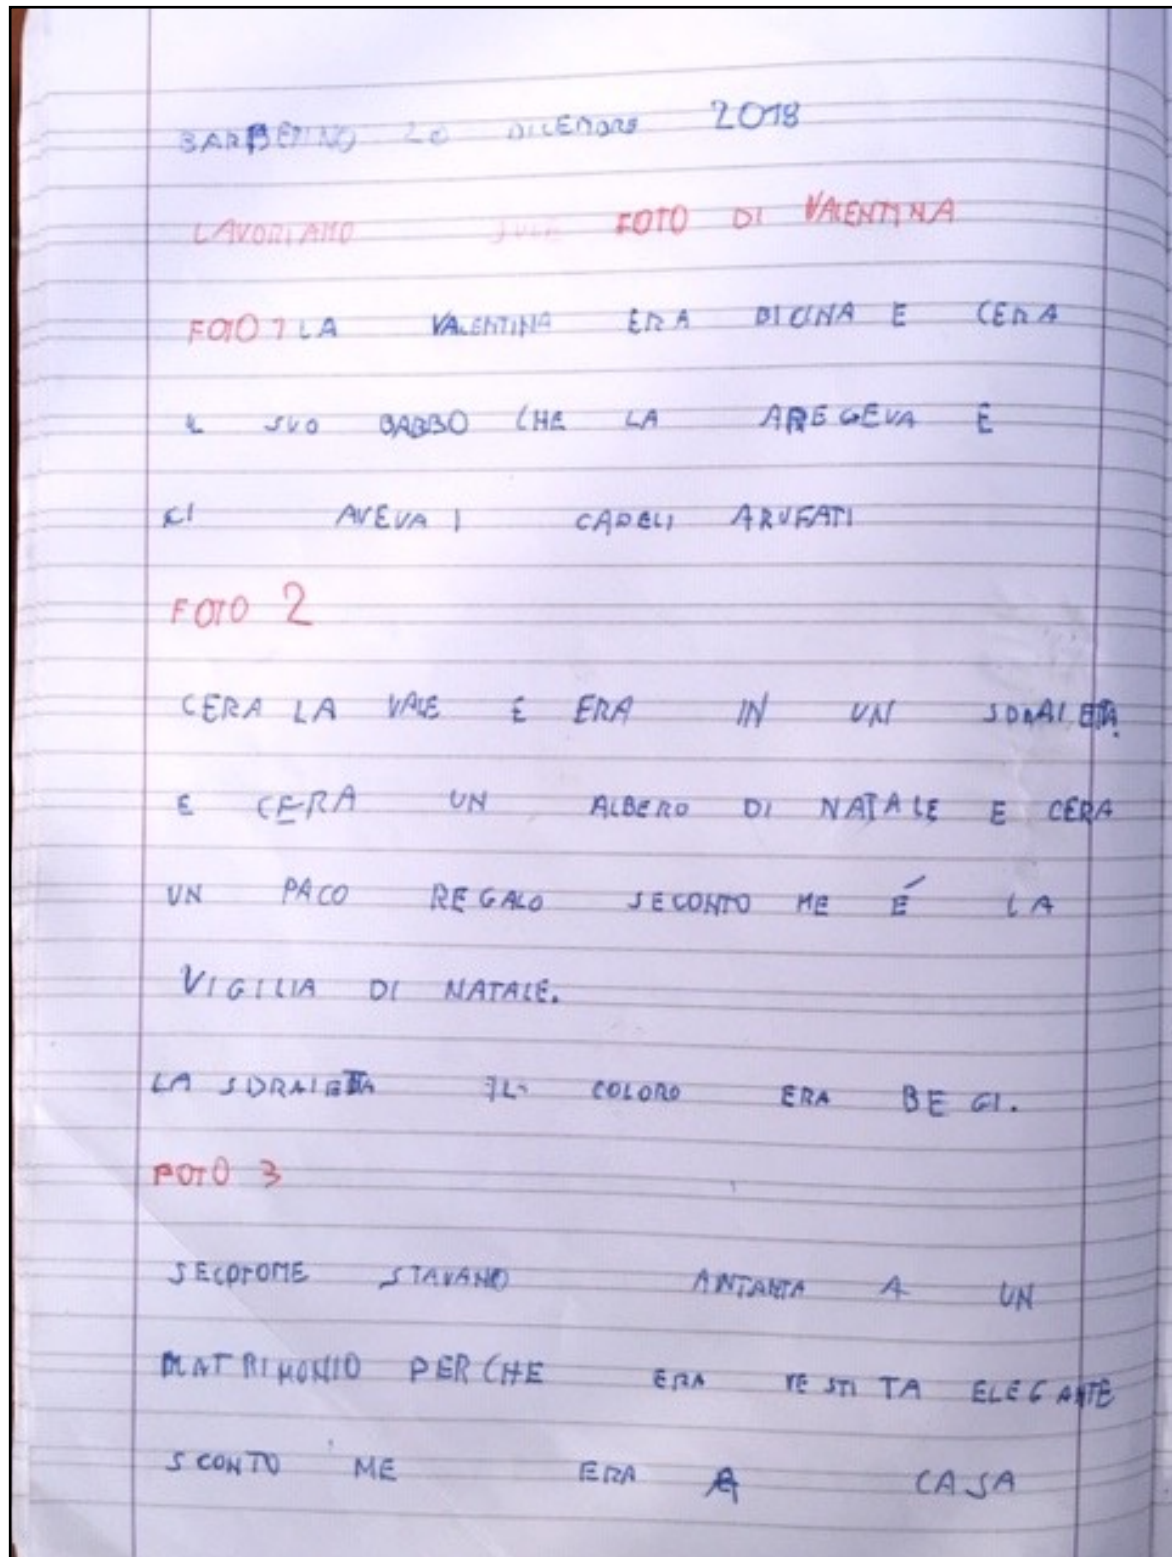 BARBERINO 20 DICEMBRE 2018
LAVORIAMO SULE FOTO DI VALENTINA
FOTO 1 LA VALENTINA ERA PICINA E CERA
IL SUO BABBO CHE LA AREGEVA E
CI AVEVA I CAPELI ARUFATI
FOTO 2
CERA LA VALE E ERA IN UN SDRAIETTA
E CERA UN ALBERO DI NATALE E CERA
UN PACO REGALO SECONTO ME É LA
VIGILIA DI NATALE.
LA SDRAIETTA IL COLORO ERA BEGI.
FOTO 3
STAVANO ANTANTA A UN
MATRIMONIO PERCHE ERA VESTITA ELEGANTE
SCONTO ME ERA A CASA